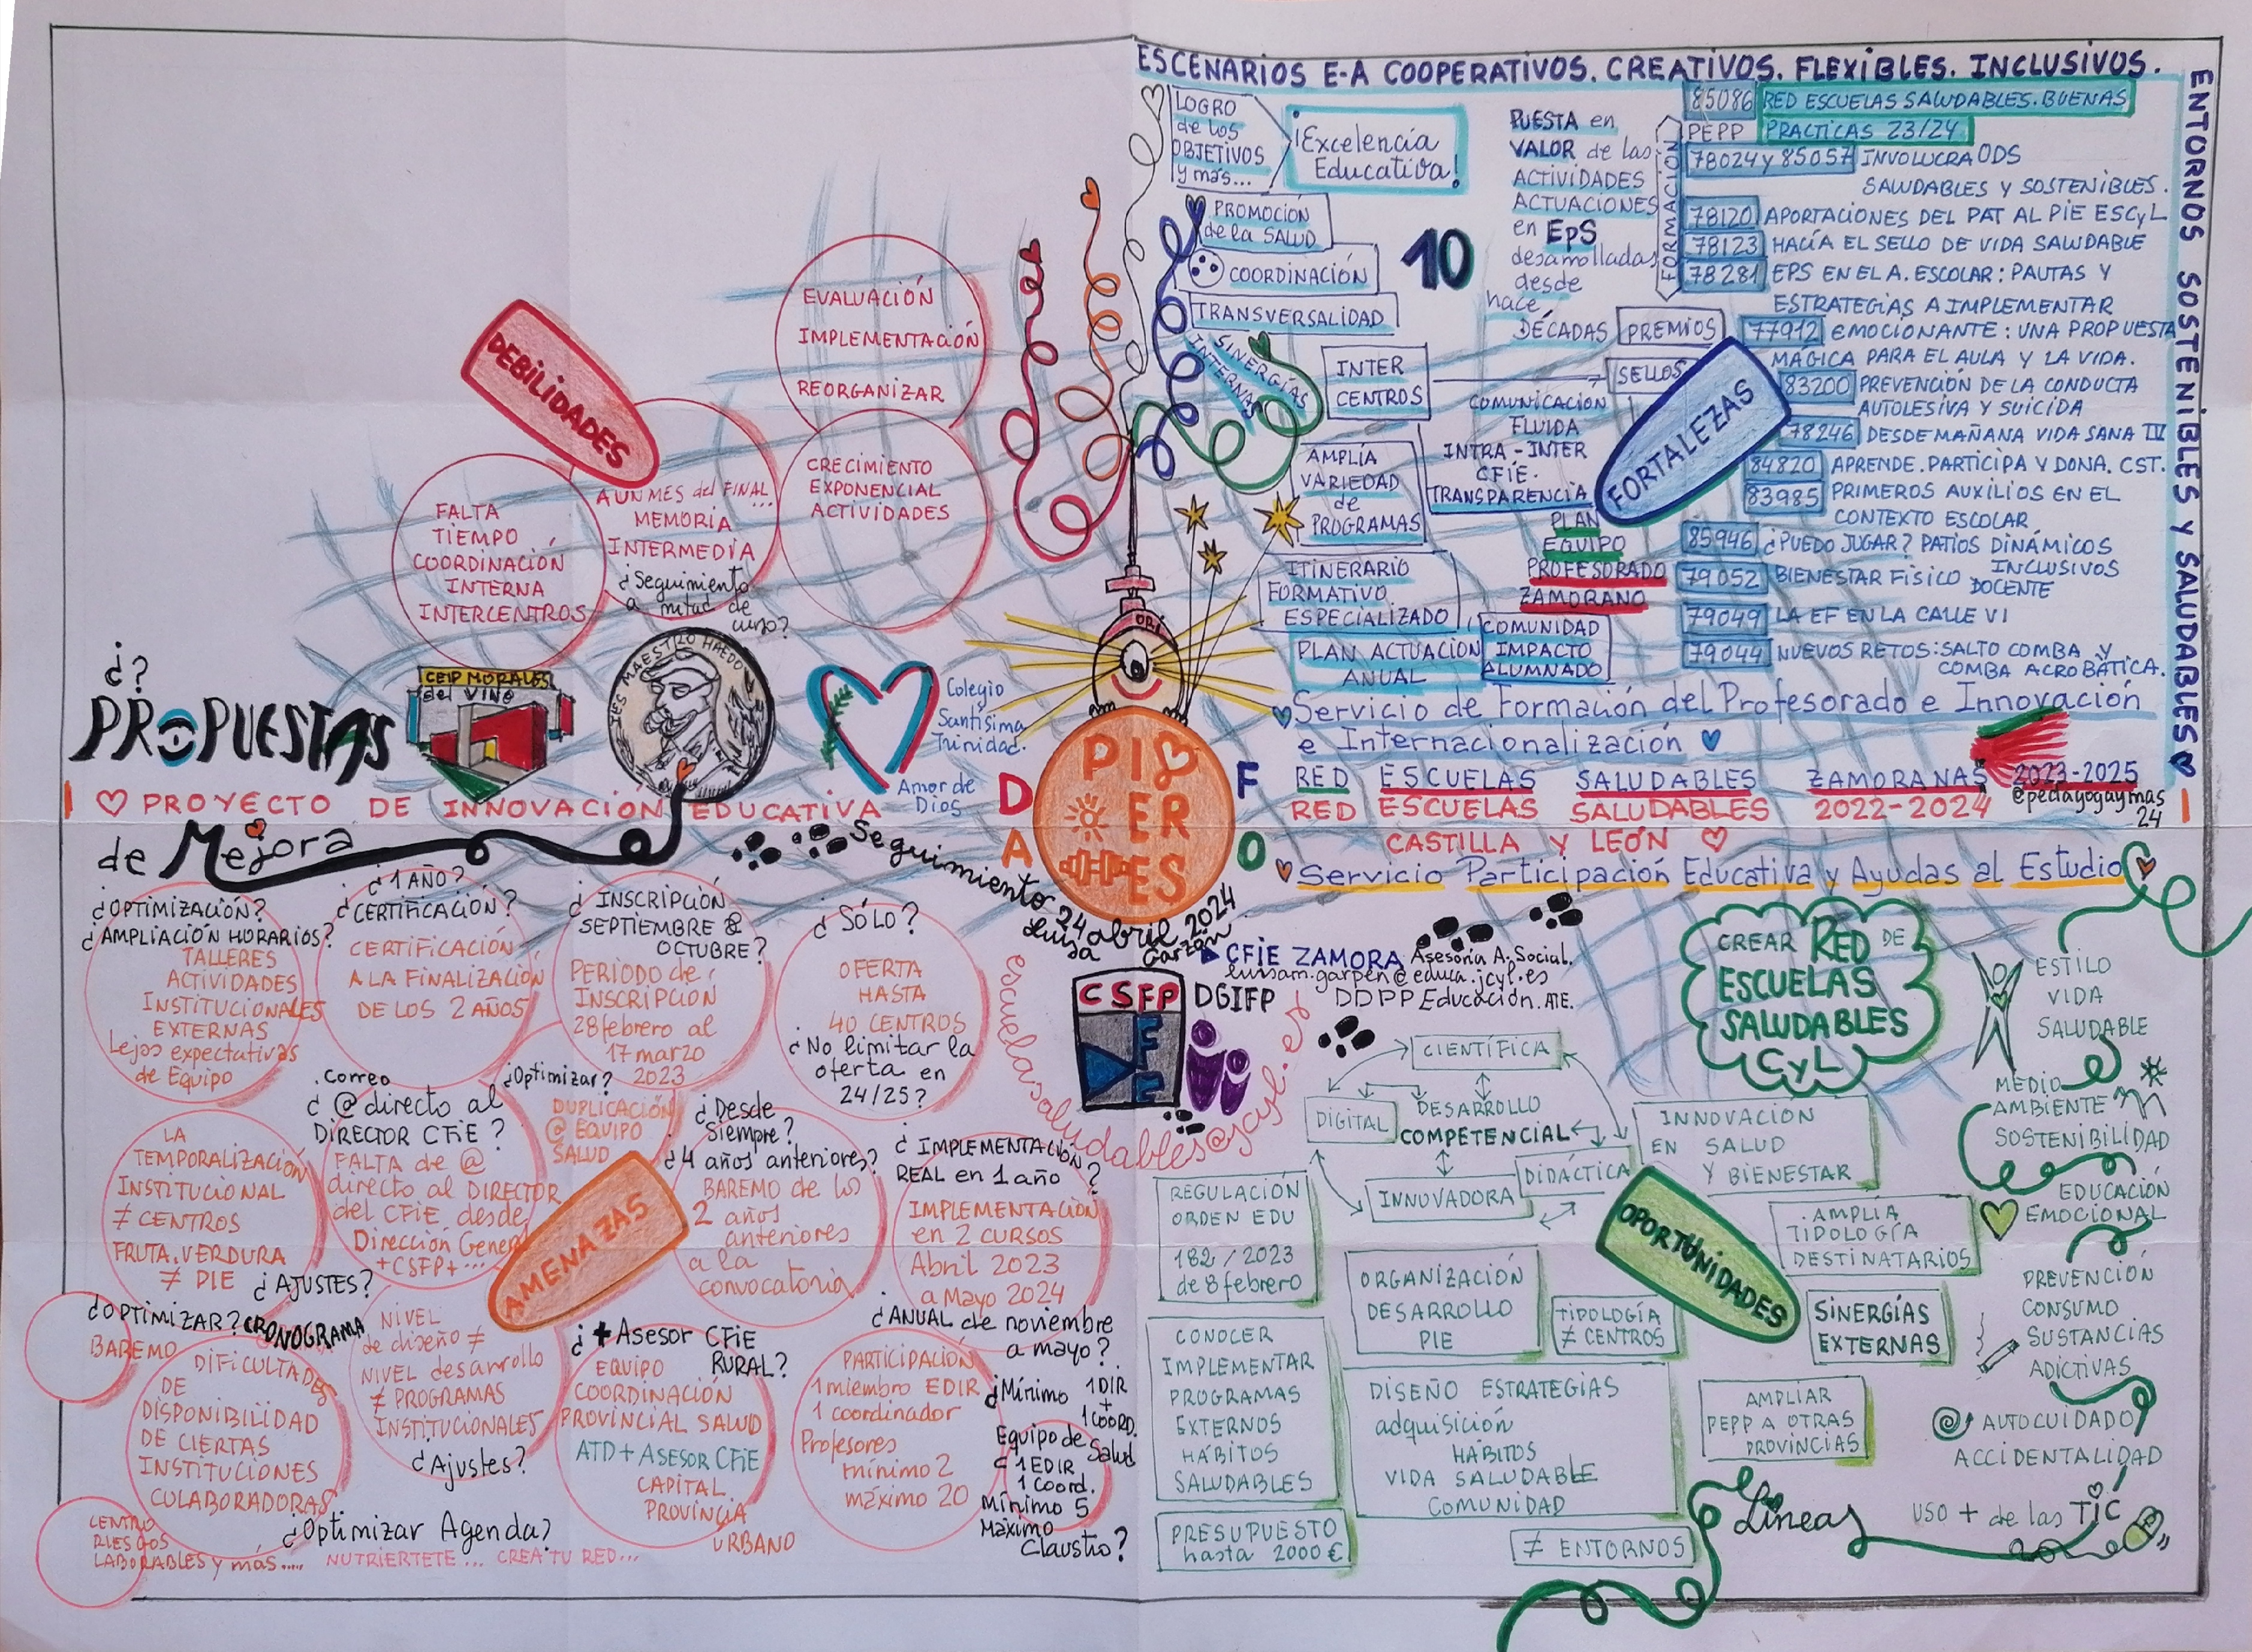 ESCENARIOS E-A COOPERATIVOS. CREATIVOS. FLEXIBLES. INCLUSIVOS.
ENTORNOS SOSTENIBLES Y SALUDABLES
LOGRO
de los
OBJETIVOS
y más...
¡Excelencia
Educativa!
PROMOCIÓN
de la SALUD
COORDINACIÓN
TRANSVERSALIDAD
SINERGÍAS
INTERNAS
10
PUESTA en
VALOR de las
ACTIVIDADES
ACTUACIONES
en EpS
desarrolladas
desde
hace
DÉCADAS
PREMIOS
SELLOS
INTER
CENTROS
COMUNICACIÓN
FLUIDA
INTRA-INTER
CFIE.
TRANSPARENCIA
AMPLIA
VARIEDAD
de
PROGRAMAS
PLAN
EQUIPO
PROFESORADO
ZAMORANO
ITINERARIO
FORMATIVO
ESPECIALIZADO
PLAN ACTUACIÓN
ANUAL
COMUNIDAD
IMPACTO
ALUMNADO
FORTALEZAS
FORMACIÓN
85086 RED ESCUELAS SALUDABLES. BUENAS
PEPP PRACTICAS 23/24
78024 y 85057 INVOLUCRA ODS
SALUDABLES Y SOSTENIBLES.
78120 APORTACIONES DEL PAT AL PIE ESCyL
78123 HACIA EL SELLO DE VIDA SALUDABLE
78281 EPS EN EL A. ESCOLAR: PAUTAS Y
ESTRATEGIAS A IMPLEMENTAR
77912 EMOCIONANTE: UNA PROPUESTA
MÁGICA PARA EL AULA Y LA VIDA.
83200 PREVENCIÓN DE LA CONDUCTA
AUTOLESIVA Y SUICIDA
78246 DESDE MAÑANA VIDA SANA IV
84820 APRENDE. PARTICIPA Y DONA. CST.
83985 PRIMEROS AUXILIOS EN EL
CONTEXTO ESCOLAR
85946 ¿PUEDO JUGAR? PATIOS DINÁMICOS
INCLUSIVOS
79052 BIENESTAR FÍSICO DOCENTE
79049 LA EF EN LA CALLE VI
79044 NUEVOS RETOS: SALTO COMBA Y
COMBA ACROBÁTICA.
Servicio de Formación del Profesorado e Innovación
e Internacionalización
RED ESCUELAS SALUDABLES ZAMORANAS 2023-2025
@pedagogaymas
24
RED ESCUELAS SALUDABLES 2022-2024
CASTILLA Y LEÓN
Servicio Participación Educativa y Ayudas al Estudio
DEBILIDADES
EVALUACIÓN
IMPLEMENTACIÓN
REORGANIZAR
CRECIMIENTO
EXPONENCIAL
ACTIVIDADES
A UN MES del FINAL...
MEMORIA
INTERMEDIA
¿Seguimiento
a mitad de
curso?
FALTA
TIEMPO
COORDINACIÓN
INTERNA
INTERCENTROS
¿?
PROPUESTAS
de Mejora
CEIP MORALES
del VINO
IES MAESTRO HAEDO
Colegio
Santísima
Trinidad.
Amor de
Dios
I PROYECTO DE INNOVACIÓN EDUCATIVA I
ORI
D
A
F
O
PI
ER
ES
Seguimiento 24 abril 2024
Luisa Garzón
CFIE ZAMORA Asesoría A. Social.
luisam.garpen@educa.jcyl.es
DGIFP DDPP Educación. ATE.
CSFP
escuelassaludables@jcyl.es
AMENAZAS
¿OPTIMIZACIÓN?
¿AMPLIACIÓN HORARIOS?
TALLERES
ACTIVIDADES
INSTITUCIONALES
EXTERNAS
Lejos expectativas
de Equipo
¿1 AÑO?
¿CERTIFICACIÓN?
CERTIFICACIÓN
A LA FINALIZACIÓN
DE LOS 2 AÑOS
¿INSCRIPCIÓN
SEPTIEMBRE &
OCTUBRE?
PERIODO de
INSCRIPCIÓN
28 febrero al
17 marzo
2023
¿SÓLO?
OFERTA
HASTA
40 CENTROS
¿No limitar la
oferta en
24/25?
LA
TEMPORALIZACIÓN
INSTITUCIONAL
≠ CENTROS
FRUTA. VERDURA
≠ PIE
¿AJUSTES?
. Correo
¿@ directo al
DIRECTOR CFIE?
FALTA de @
directo al DIRECTOR
del CFIE desde
Dirección General
+CSFP+...
¿Optimizar?
DUPLICACIÓN
@ EQUIPO
SALUD
¿Desde
Siempre?
¿4 años anteriores?
BAREMO de los
2 años
anteriores
a la
convocatoria
¿IMPLEMENTACIÓN
REAL en 1 año?
IMPLEMENTACIÓN
en 2 CURSOS
Abril 2023
a Mayo 2024
¿ANUAL de noviembre
a mayo?
¿OPTIMIZAR? CRONOGRAMA
BAREMO
DIFICULTADES
DE
DISPONIBILIDAD
DE CIERTAS
INSTITUCIONES
COLABORADORAS
NIVEL
de diseño ≠
NIVEL desarrollo
≠ PROGRAMAS
INSTITUCIONALES
¿Ajustes?
¿+ Asesor CFIE
RURAL?
EQUIPO
COORDINACIÓN
PROVINCIAL SALUD
ATD + ASESOR CFIE
CAPITAL
PROVINCIA
URBANO
PARTICIPACIÓN
1 miembro EDIR
1 coordinador
Profesores
mínimo 2
máximo 20
¿Mínimo 1 DIR
+
1 COORD.
Equipo de Salud
1 EDIR
1 Coord.
Mínimo 5
Máximo
Claustro?
CENTRO
RIESGOS
LABORABLES y más.....
¿Optimizar Agenda?
NUTRIERTETE... CREA TU RED...
OPORTUNIDADES
CREAR RED DE
ESCUELAS
SALUDABLES
CyL
CIENTÍFICA
DIGITAL
DESARROLLO
COMPETENCIAL
DIDÁCTICA
INNOVADORA
INNOVACIÓN
EN SALUD
Y BIENESTAR
REGULACIÓN
ORDEN EDU
182/2023
de 8 febrero
ORGANIZACIÓN
DESARROLLO
PIE
TIPOLOGÍA
≠ CENTROS
AMPLIA
TIPOLOGÍA
DESTINATARIOS
SINERGÍAS
EXTERNAS
CONOCER
IMPLEMENTAR
PROGRAMAS
EXTERNOS
HÁBITOS
SALUDABLES
DISEÑO ESTRATEGIAS
adquisición
HÁBITOS
VIDA SALUDABLE
COMUNIDAD
AMPLIAR
PEPP A OTRAS
PROVINCIAS
PRESUPUESTO
hasta 2000 €
≠ ENTORNOS
Líneas
ESTILO
VIDA
SALUDABLE
MEDIO
AMBIENTE
SOSTENIBILIDAD
EDUCACIÓN
EMOCIONAL
PREVENCIÓN
CONSUMO
SUSTANCIAS
ADICTIVAS
AUTOCUIDADO
ACCIDENTALIDAD
USO + de las TIC